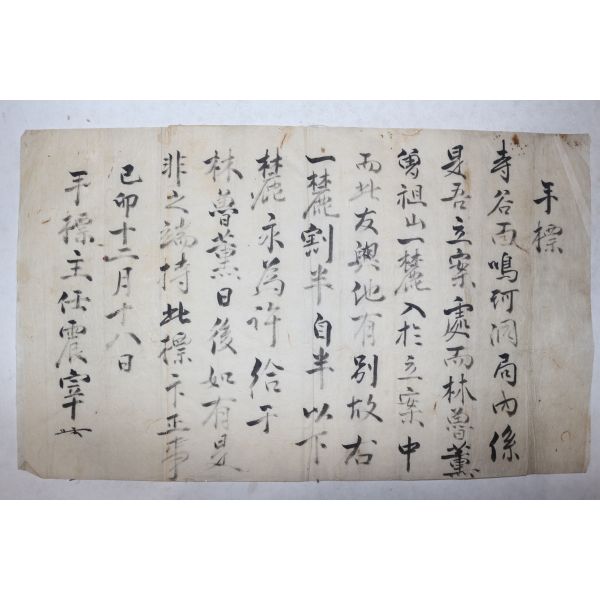 手標
寺谷面鳴珂洞局內係
是吾立案處而林魯薰
曾祖山一麓入於立案中
而此友與他有別故右
一麓割半自半以下
麓永爲許給于
林魯薰日後如有是
非之端持此標卞正事
己卯十二月十八日
手標主任震宰